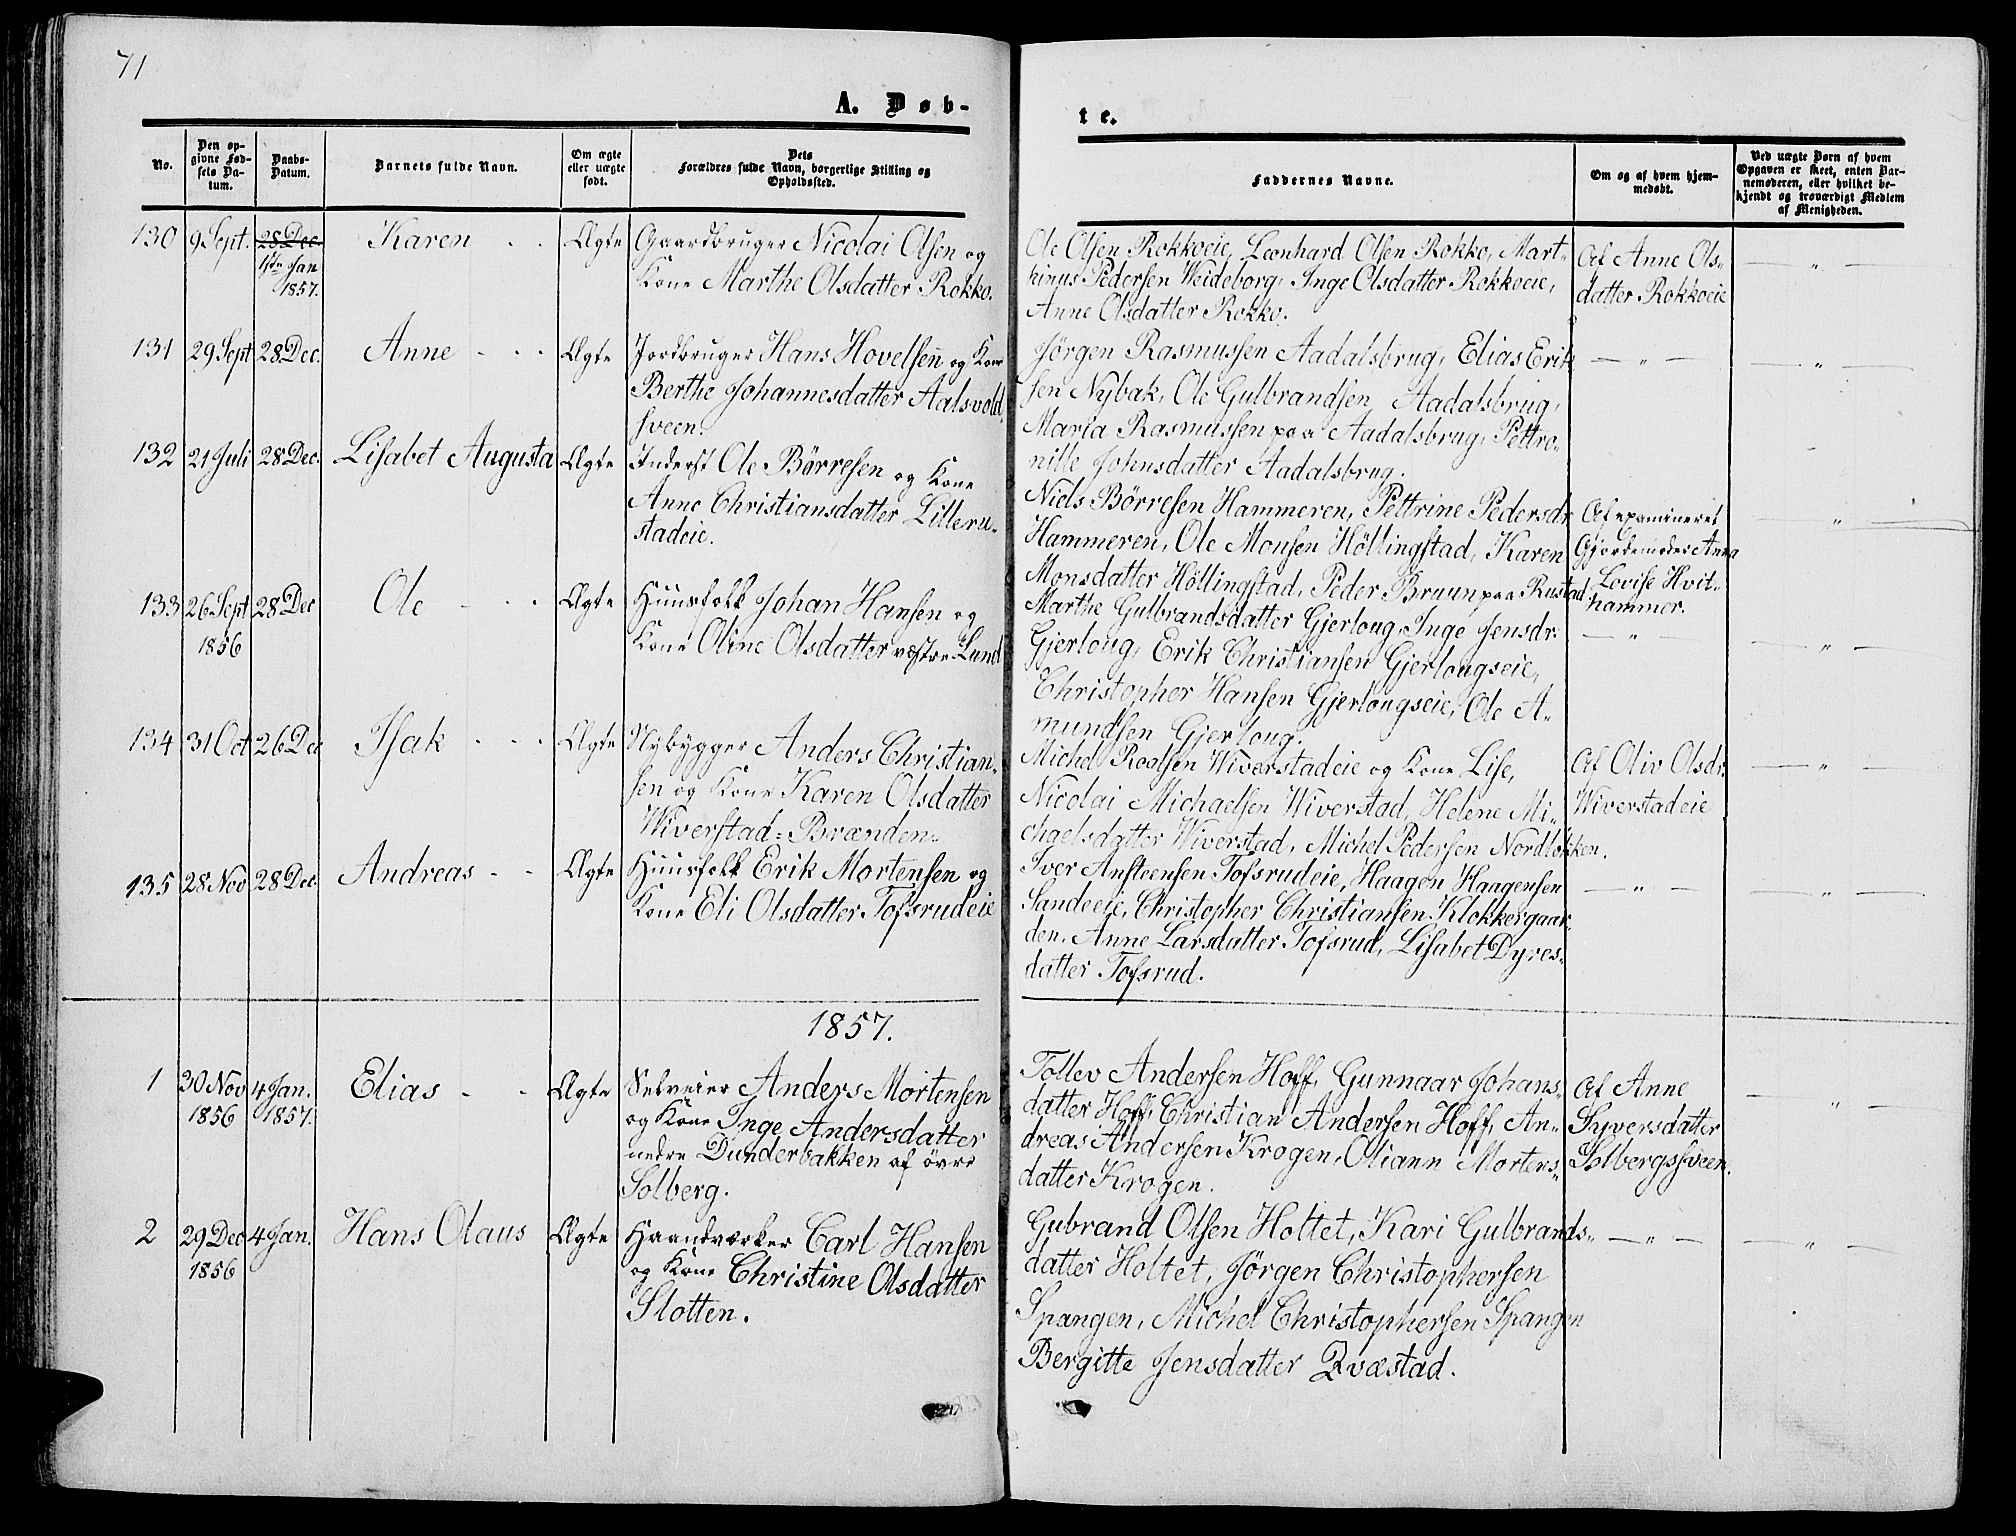 71
A. Døb-
te.
No.
Den op-
givne Fød-
sels Da-
tum.
Daabs-
Datum.
Barnets fulde Navn.
Om ægte
eller uægte
født.
Dets
Forældres fulde Navn, borgerlige Stilling og
Opholdssted.
Faddernes Navne.
Om og af hvem hjem-
medøbt.
Ved uægte Børn af hvem
Opgaven er skeet, enten Bar-
nemoderen, eller hvilket be-
kjendt og troværdigt Medlem
af Menigheden.
130 9 Sept. 28 Dec. Karen Ægte Gaardbruger Nicolai Olsen og
1ste Jan
1857.
Kone Marthe Olsdatter Rokko.
Ole Olsen Rokkoeie, Leonhard Olsen Rokko, Mart-
hinus Pedersen Weideborg, Inge Olsdatter Rokkoeie,
Anne Olsdatter Rokko.
Af Anne Ols-
datter Rokkoeie
— " —
131 29 Sept 28 Dec. Anne Ægte Jordbruger Hans Hovelsen og Kone
Berthe Johannesdatter Aalsvold
sveen.
Jörgen Rasmussen Aadalsbrug, Elias Erik
sen Nybak, Ole Gulbrandsen Aadalsbrug,
Maria Rasmussen paa Aadalsbrug, Pettro-
nille Johnsdatter Aadalsbrug.
— " —
— " —
132 21 Juli 28 Dec. Lisabet Augusta Ægte Inderst Ole Börresen og Kone
Anne Christiansdatter Lilleru-
stadeie.
Niels Börresen Hammeren, Pettrine Pedersdr
Hammeren, Ole Monsen Höllingstad, Karen
Monsdatter Höllingstad, Peder Bruun paa Rustad
Af examineret
Gjordemoder Anna
Lovise Hvit-
hammer.
— " —
133 26 Sept 28 Dec Ole Ægte Huusfolk Johan Hansen og
1856
Kone Oline Olsdatter vestre Lund
Marthe Gulbrandsdatter Gjerloug, Inge Jensdr.
Gjerloug, Erik Christiansen Gjerlougseie,
Christopher Hansen Gjerlougseie, Ole A-
mundsen Gjerloug.
— " —
— " —
134 31 Oct 26 Dec Isak Ægte Nybygger Anders Christian-
sen og Kone Karen Olsdatter
Wiverstad=Brænden.
Michel Roalsen Wiverstadeie og Kone Lise,
Nicolai Michaelsen Wiverstad, Helene Mi-
chaelsdatter Wiverstad, Michel Pedersen Nordlökken.
Af Oliv Olsdr.
Wiverstadeie
— " —
135 28 Nov 28 Dec. Andreas Ægte Huusfolk Erik Mortensen og
Kone Eli Olsdatter Tofsrudeie
Iver Ansteensen Tofsrudeie, Haagen Haagensen
Sandeeie, Christopher Christiansen Klokkergaar-
den. Anne Larsdatter Tofsrud, Lisabet Dyres-
datter Tofsrud.
— " —
— " —
1857.
1 30 Nov 4 Jan. Elias Ægte Selveier Anders Mortensen
1856 1857.
og Kone Inge Andersdatter
nedre Dunderbakken af övre
Solberg.
Tollev Andersen Hoff, Gunnaar Johans-
datter Hoff, Christian Andersen Hoff, An-
dreas Andersen Krogen, Oliann Mortens-
datter Krogen.
Af Anne
Syversdatter
Solbergsveen.
— " —
2 29 Dec 4 Jan. Hans Olaus Ægte Haandværker Carl Hansen
1856
og Kone Christine Olsdatter
Slotten.
Gubrand Olsen Holtet, Kari Gulbrands-
datter Holtet, Jörgen Christophersen
Spangen, Michel Christophersen Spangen
Bergitte Jensdatter Qvæstad.
— " —
— " —